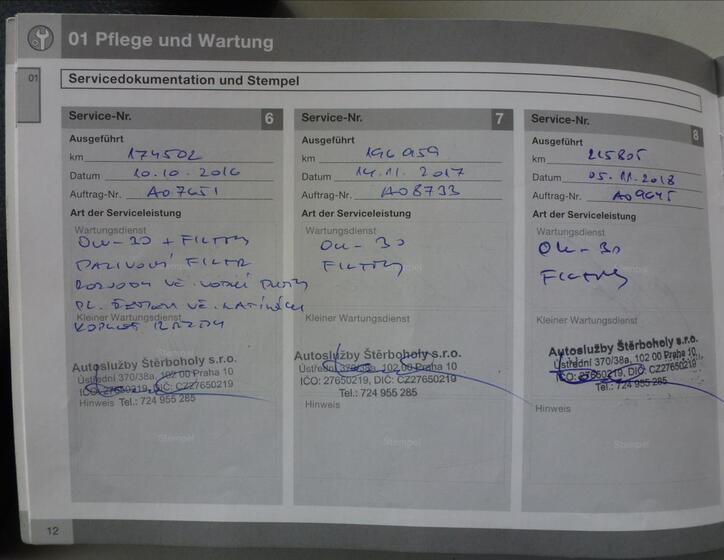 01 Pflege und Wartung
01
Servicedokumentation und Stempel
Service-Nr. 6
Ausgeführt
km 174502
Datum 10.10.2016
Auftrag-Nr. A07651
Art der Serviceleistung
Wartungsdienst
0W-30 + FILTRY
PALIVOVÝ FILTR
ROZVODY VČ. VODNÍ PUMPY
VČ.
Kleiner Wartungsdienst
Autoslužby Štěrboholy s.r.o.
Ústřední 370/38a, 102 00 Praha 10
IČO: 27650219, DIČ: CZ27650219
Tel.: 724 955 285
Hinweis
Stempel
Service-Nr. 7
Ausgeführt
km 196959
Datum 14.11.2017
Auftrag-Nr. A08733
Art der Serviceleistung
Wartungsdienst
0W-30
FILTRY
Kleiner Wartungsdienst
Autoslužby Štěrboholy s.r.o.
Ústřední 370/38a, 102 00 Praha 10
IČO: 27650219, DIČ: CZ27650219
Tel.: 724 955 285
Hinweis
Stempel
Service-Nr. 8
Ausgeführt
km 215805
Datum 05.11.2018
Auftrag-Nr. A09645
Art der Serviceleistung
Wartungsdienst
0W-30
FILTRY
Kleiner Wartungsdienst
Autoslužby Štěrboholy s.r.o.
Ústřední 370/38a, 102 00 Praha 10
IČO: 27650219, DIČ: CZ27650219
Tel.: 724 955 285
Hinweis
Stempel
12